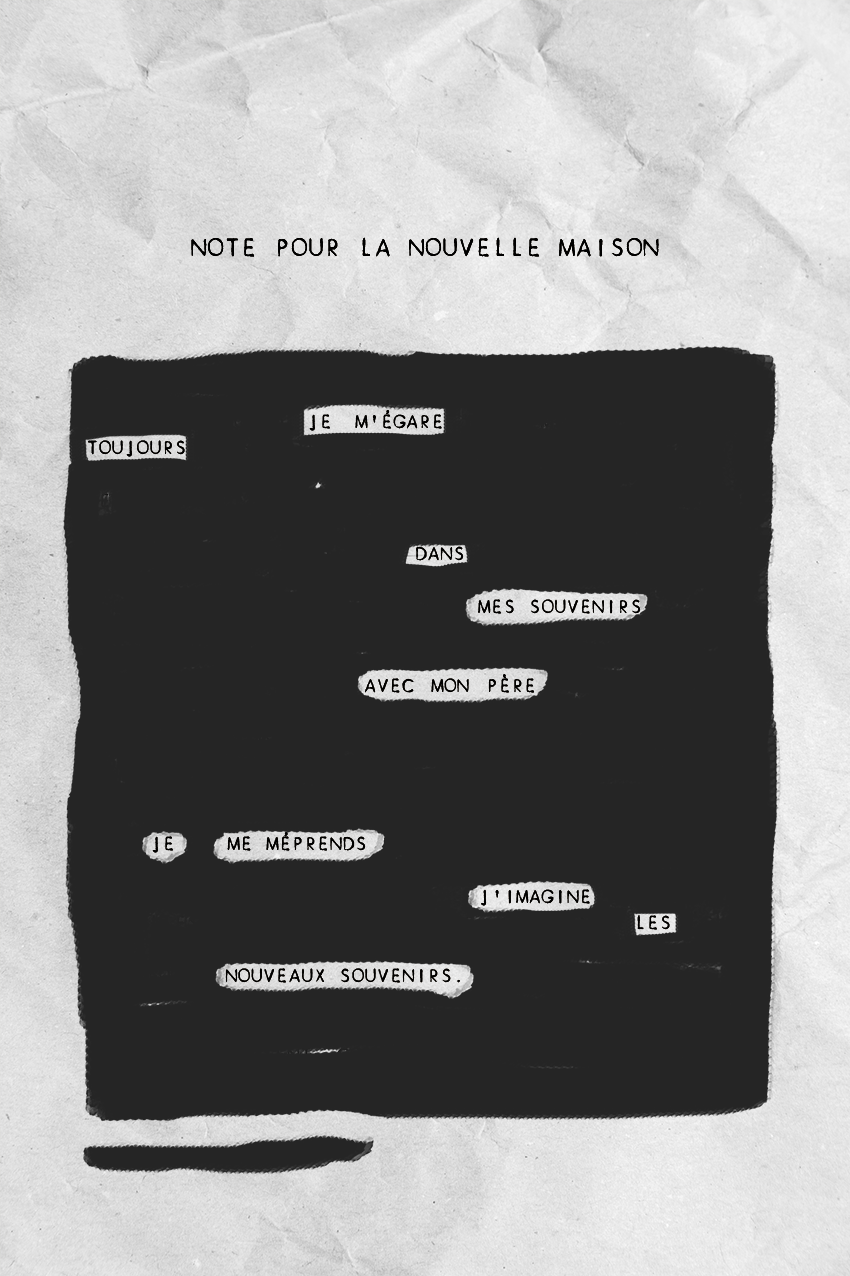 NOTE POUR LA NOUVELLE MAISON
JE M'ÉGARE
TOUJOURS
DANS
MES SOUVENIRS
AVEC MON PÈRE
JE ME MÉPRENDS
J'IMAGINE
LES
NOUVEAUX SOUVENIRS.